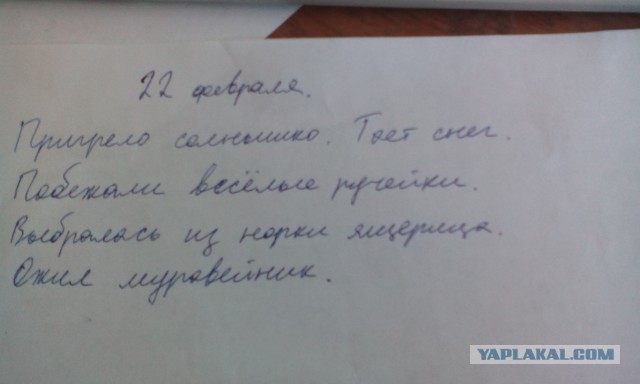 22 февраля.
Пригрело солнышко. Тает снег.
Побежали весёлые ручейки.
Выбралась из норки ящерица.
Ожил муравейник.
YAPLAKAL.COM